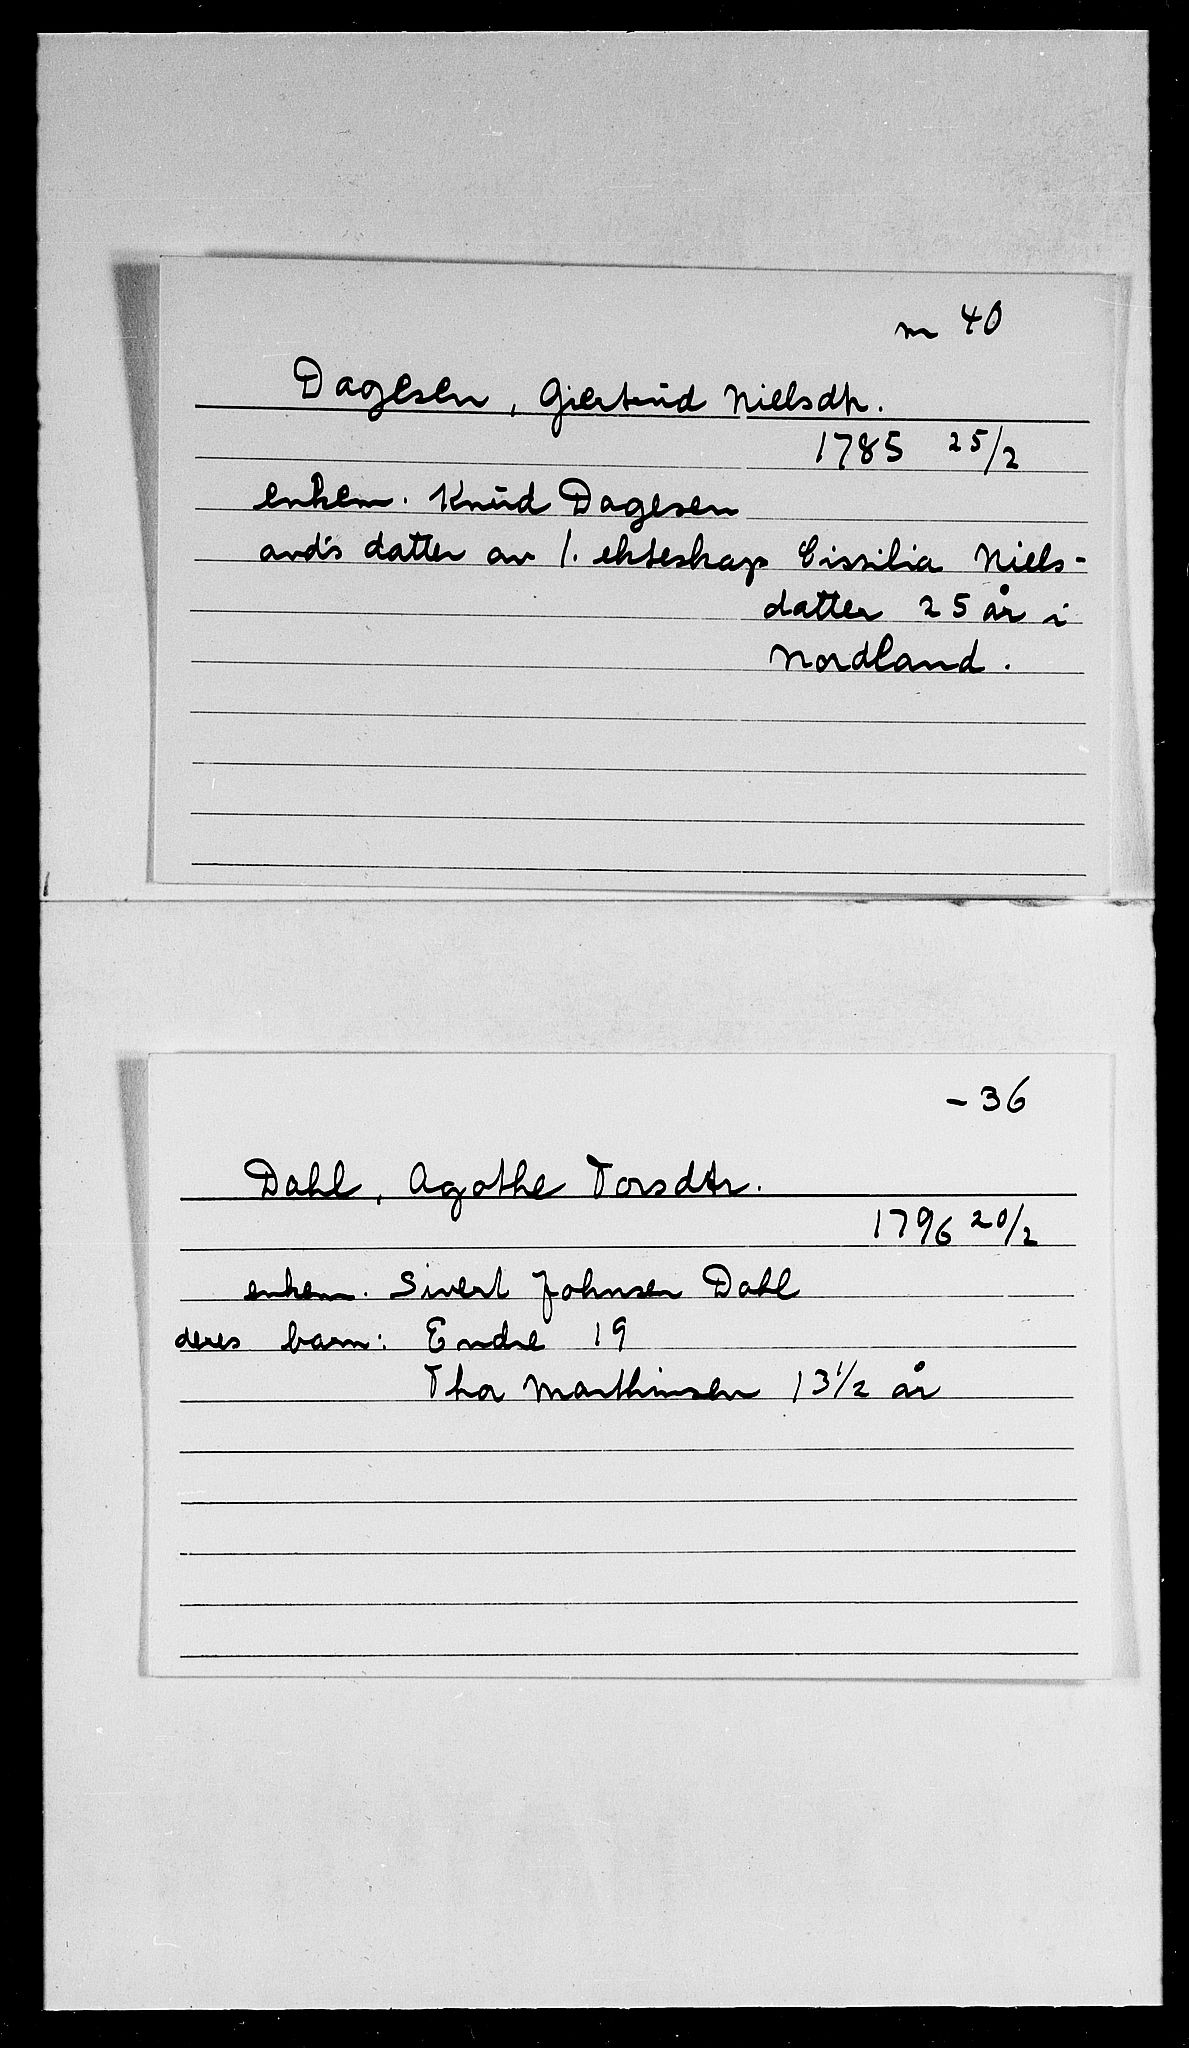 m 40
Dagesen, Giertrud Nielsdtr.
1785 25/2
enkem. Knud Dagesen
avd's datter av 1. ekteskap Cissilia Niels-
datter 25 år i
Nordland.
- 36
Dahl, Agathe Torsdtr.
1796 20/2
enkem. Sivert Johnsen Dahl
deres barn: Endre 19
Thor Marthinsen 13 1/2 år